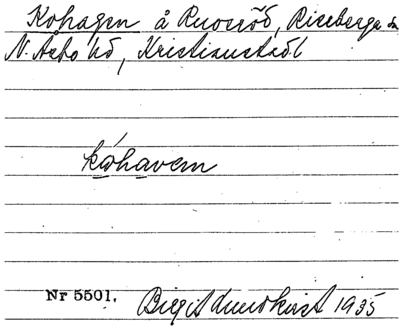 Kohagen å Ruosröd, Riseberga sn
N. Åsbo hd, Kristianstads l
kóhavem
Nr 5501. Birgit Lundkvist 1935